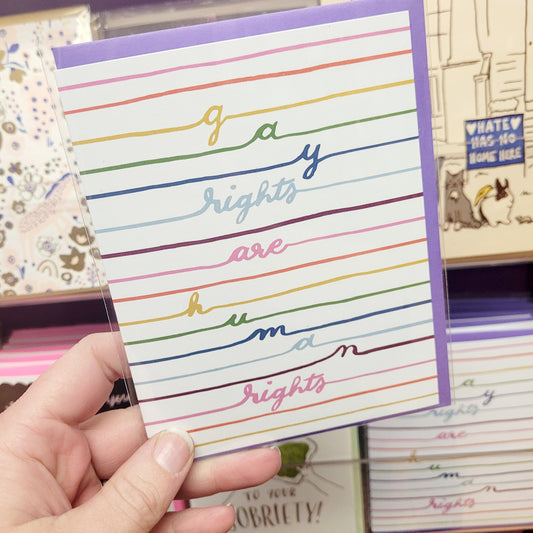 g
a
y
rights
are
h
u
m
a
n
rights
HATE
HAS NO
HOME HERE
TO YOUR
SOBRIETY!
a
y
rights
are
h
u
m
a
n
rights